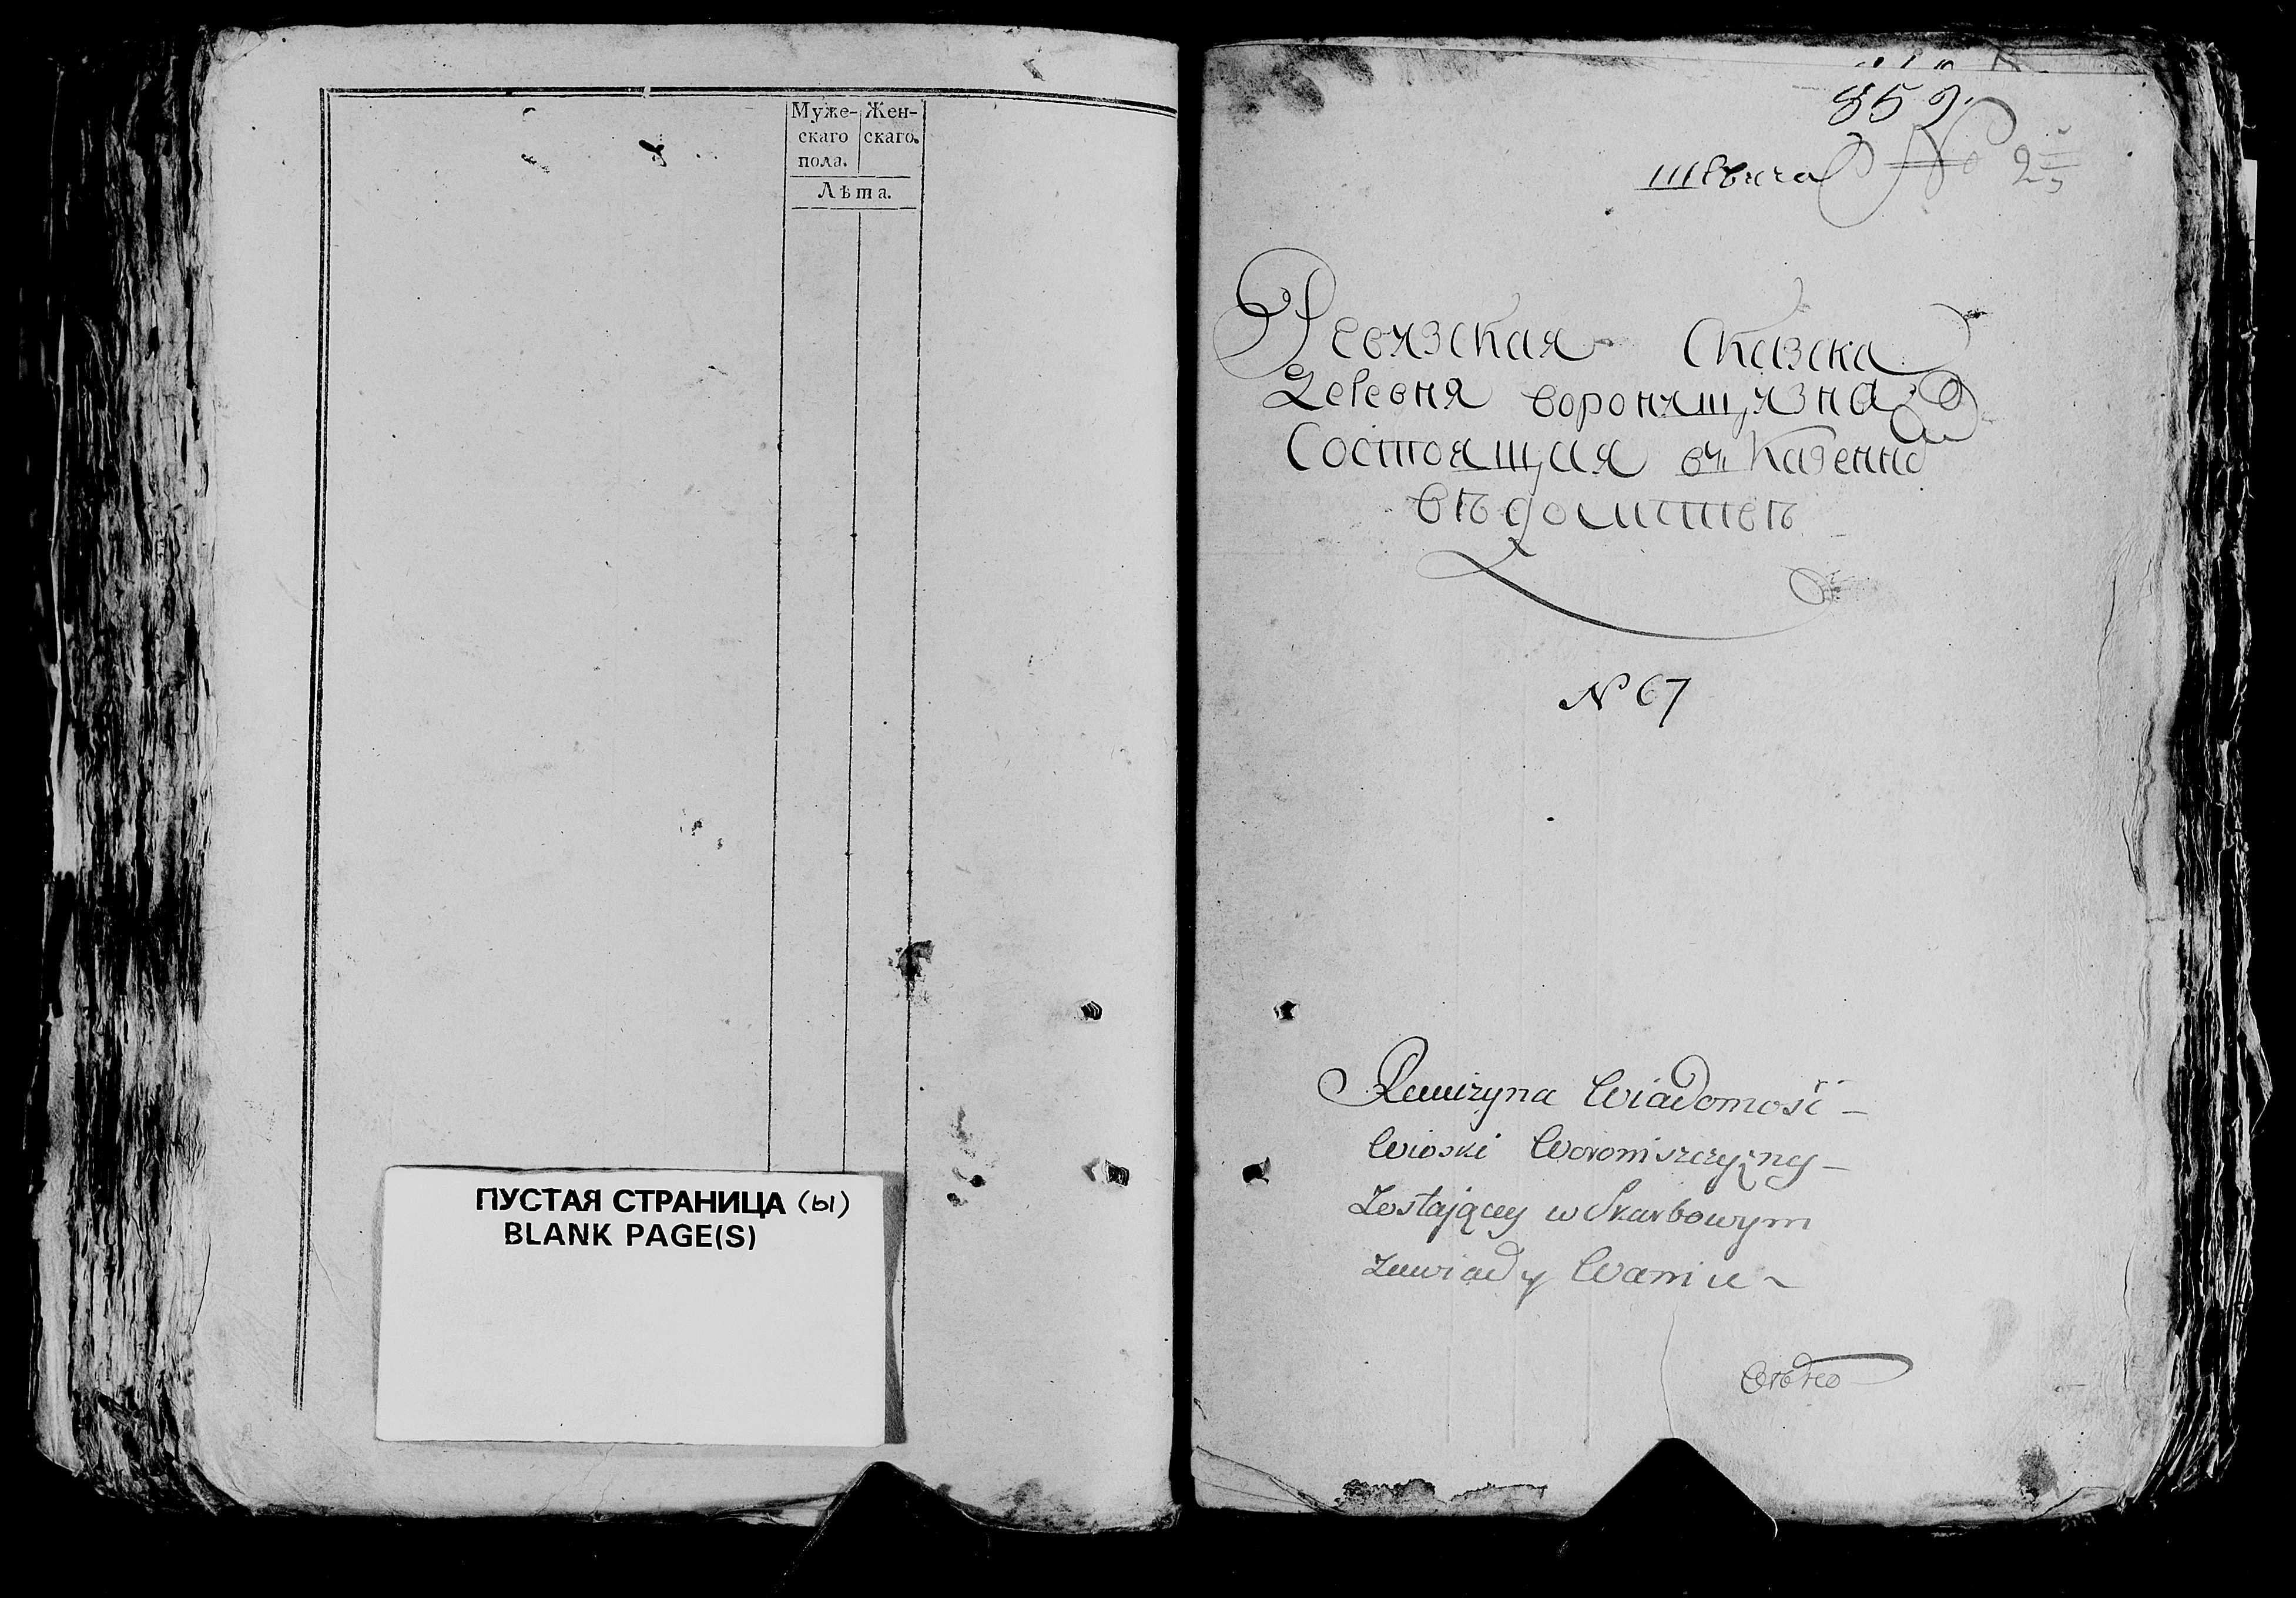 Муже- Жен-
скаго скаго.
пола.
Лѣта.
ПУСТАЯ СТРАНИЦА (ы)
BLANK PAGE(S)
859.
№ 2
Ревязская Сказска
Деревня воронящязна
Состоящия въ Казенно
вѣдомствѣ
N 67
Rewizyna Wiadomość
Wioski Woroniszczyzny
Zostającey w Skarbowym
Zawiady Waniu